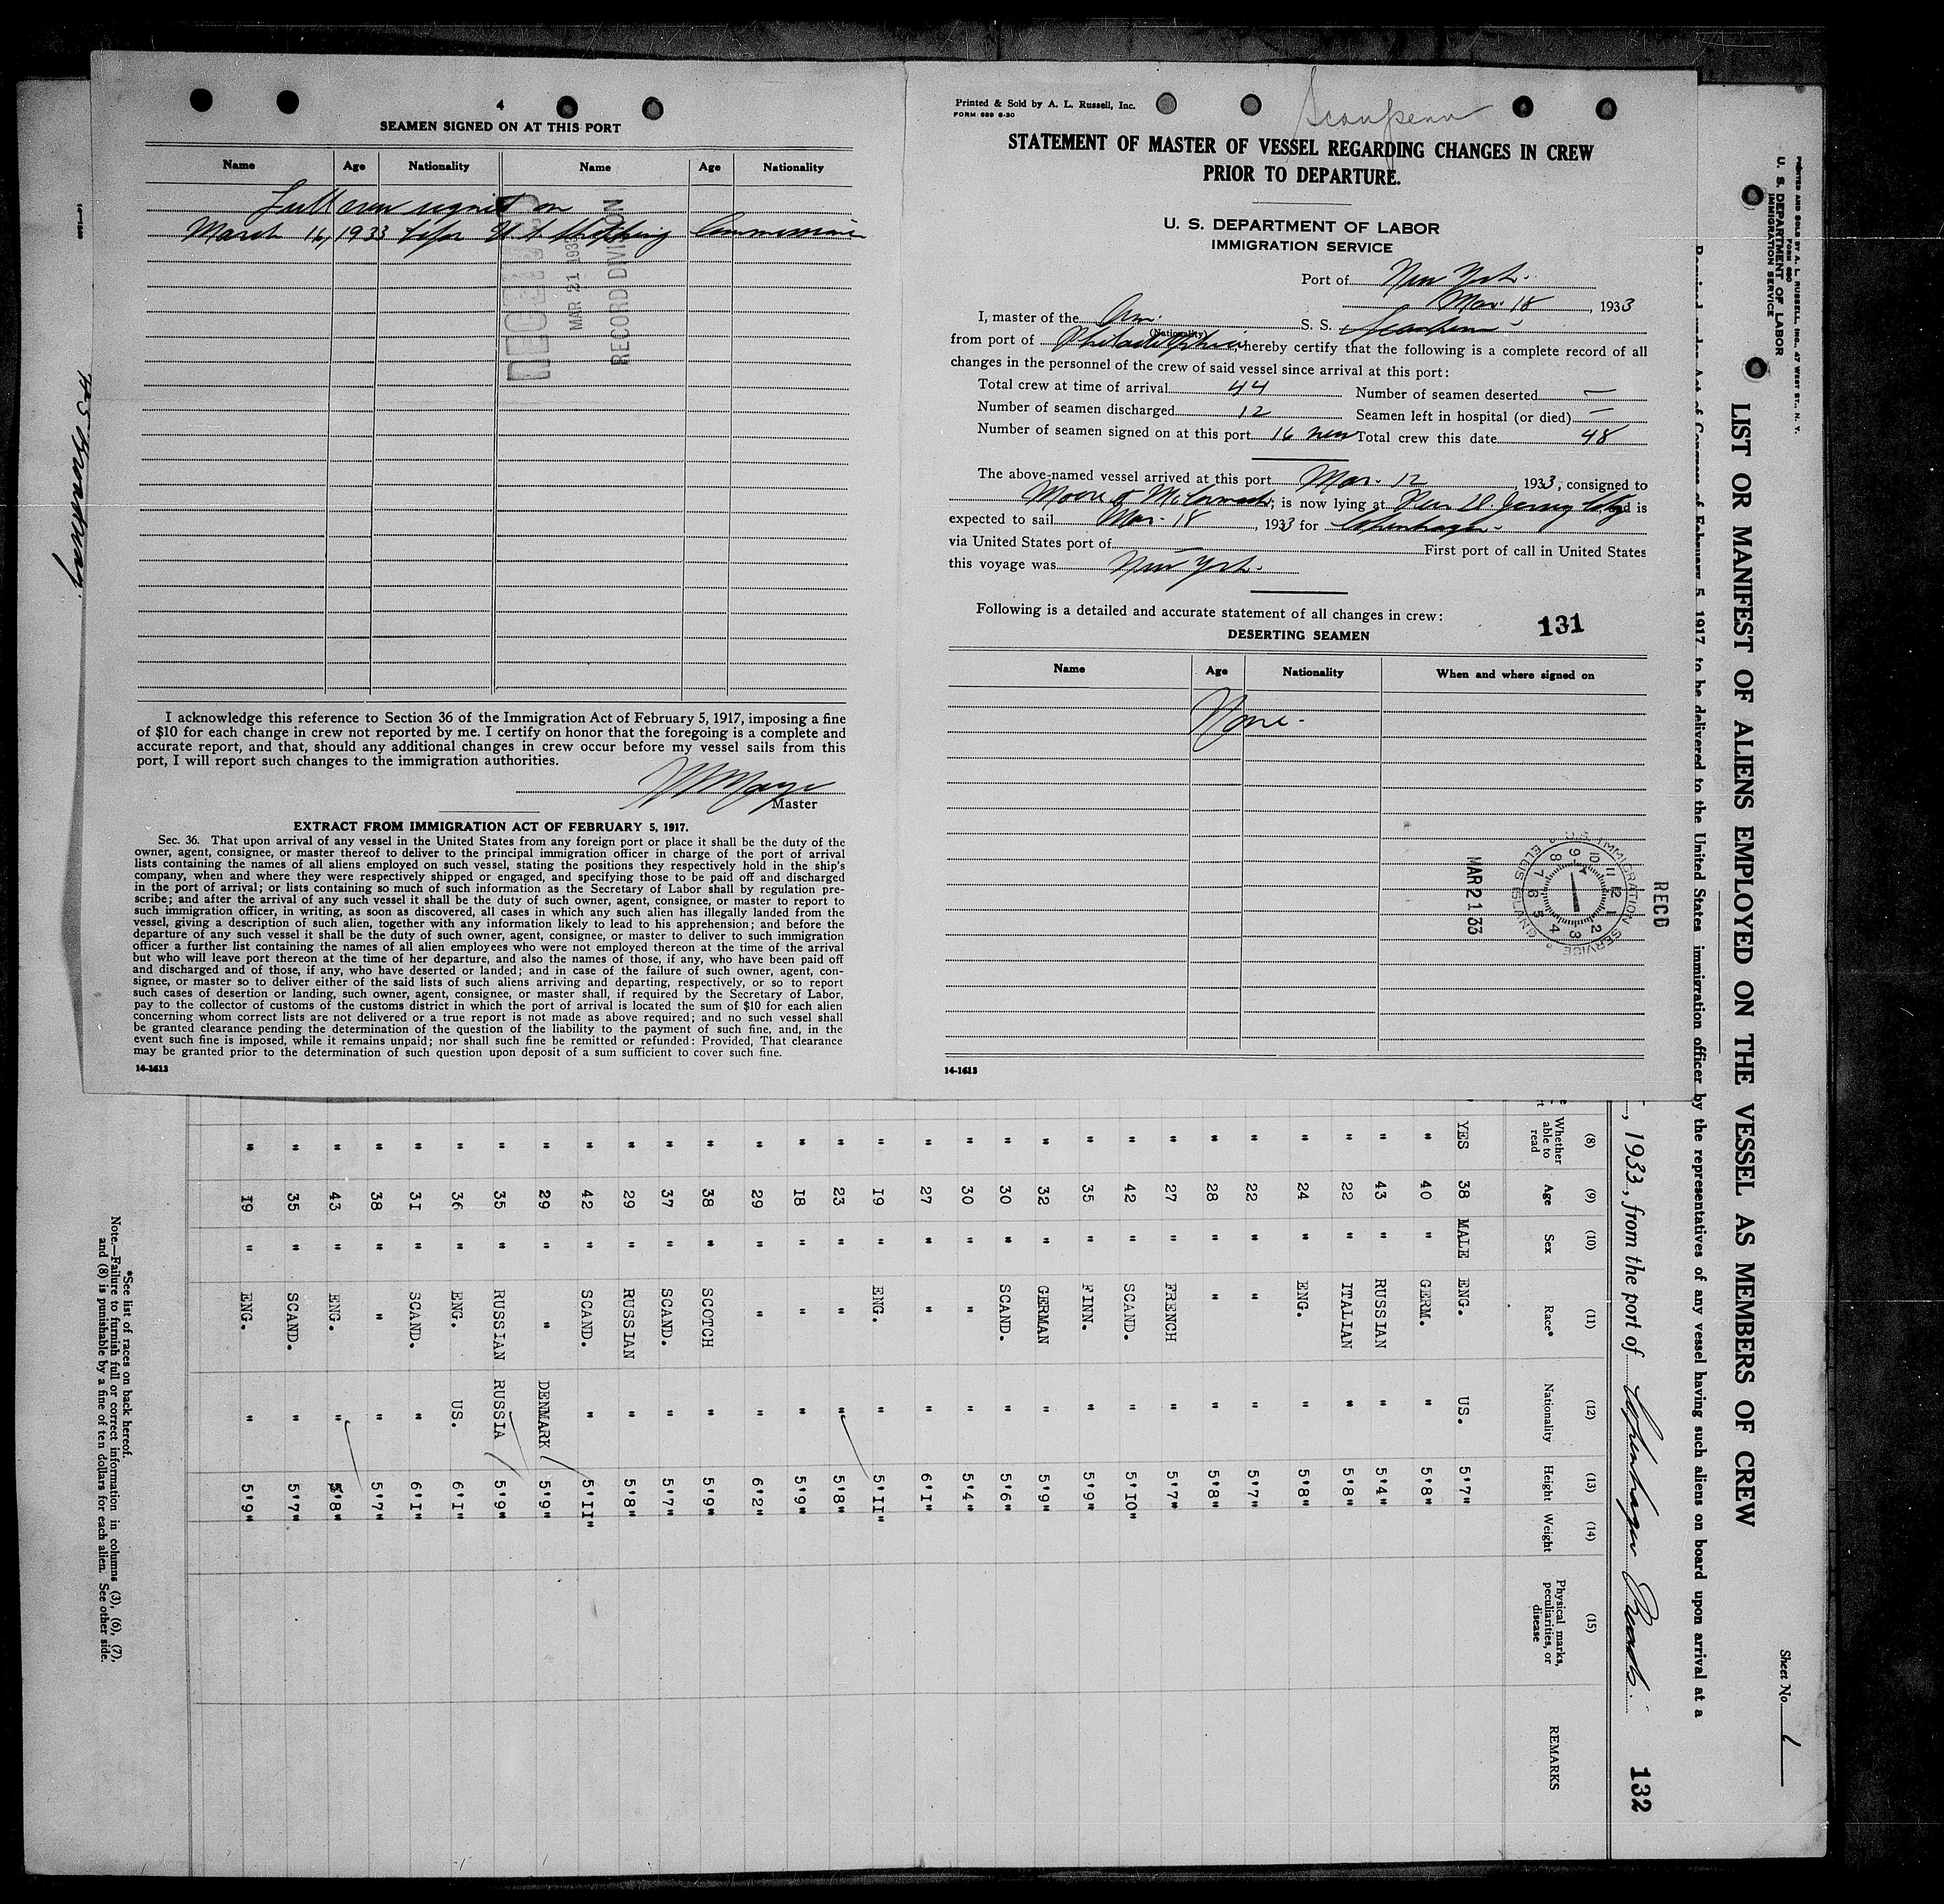 4
SEAMEN SIGNED ON AT THIS PORT
Name Age Nationality Name Age Nationality
Full crew signed on
March 16, 1933 before U.S. Shipping Commissioner
RECEIVED
MAR 21 1933
RECORD DIVISION
I acknowledge this reference to Section 36 of the Immigration Act of February 5, 1917, imposing a fine
of $10 for each change in crew not reported by me. I certify on honor that the foregoing is a complete and
accurate report, and that, should any additional changes in crew occur before my vessel sails from this
port, I will report such changes to the immigration authorities.
Master
EXTRACT FROM IMMIGRATION ACT OF FEBRUARY 5, 1917.
Sec. 36. That upon arrival of any vessel in the United States from any foreign port or place it shall be the duty of the
owner, agent, consignee, or master thereof to deliver to the principal immigration officer in charge of the port of arrival
lists containing the names of all aliens employed on such vessel, stating the positions they respectively hold in the ship's
company, when and where they were respectively shipped or engaged, and specifying those to be paid off and discharged
in the port of arrival; or lists containing so much of such information as the Secretary of Labor shall by regulation pre-
scribe; and after the arrival of any such vessel it shall be the duty of such owner, agent, consignee, or master to report to
such immigration officer, in writing, as soon as discovered, all cases in which any such alien has illegally landed from the
vessel, giving a description of such alien, together with any information likely to lead to his apprehension; and before the
departure of any such vessel it shall be the duty of such owner, agent, consignee, or master to deliver to such immigration
officer a further list containing the names of all alien employees who were not employed thereon at the time of the arrival
but who will leave port thereon at the time of her departure, and also the names of those, if any, who have been paid off
and discharged and of those, if any, who have deserted or landed; and in case of the failure of such owner, agent, con-
signee, or master so to deliver either of the said lists of such aliens arriving and departing, respectively, or so to report
such cases of desertion or landing, such owner, agent, consignee, or master shall, if required by the Secretary of Labor,
pay to the collector of customs of the customs district in which the port of arrival is located the sum of $10 for each alien
concerning whom correct lists are not delivered or a true report is not made as above required; and no such vessel shall
be granted clearance pending the determination of the question of the liability to the payment of such fine, and, in the
event such fine is imposed, while it remains unpaid; nor shall such fine be remitted or refunded: Provided, That clearance
may be granted prior to the determination of such question upon deposit of a sum sufficient to cover such fine.
14-1613
Printed & Sold by A. L. Russell, Inc.
FORM 689 6-30
Scanpenn
STATEMENT OF MASTER OF VESSEL REGARDING CHANGES IN CREW
PRIOR TO DEPARTURE.
U. S. DEPARTMENT OF LABOR
IMMIGRATION SERVICE
Port of New York
Mar. 18, 1933
I, master of the Am. S. S. Scanpenn
(Nationality)
from port of Philadelphia, hereby certify that the following is a complete record of all
changes in the personnel of the crew of said vessel since arrival at this port:
Total crew at time of arrival 44 Number of seamen deserted —
Number of seamen discharged 12 Seamen left in hospital (or died) —
Number of seamen signed on at this port 16 new Total crew this date 48
The above-named vessel arrived at this port Mar. 12, 1933, consigned to
Moore & McCormack; is now lying at Pier D. Jersey City and is
expected to sail Mar. 18, 1933 for Copenhagen
via United States port of — First port of call in United States
this voyage was New York.
Following is a detailed and accurate statement of all changes in crew:
131
DESERTING SEAMEN
Name Age Nationality When and where signed on
None.
RECD
U.S. IMMIGRATION SERVICE ELLIS ISLAND
MAR 21 33
14-1613
PRINTED AND SOLD BY A. L. RUSSELL, INC., 47 WEST ST., N. Y.
FORM 680
U. S. DEPARTMENT OF LABOR
IMMIGRATION SERVICE
Sheet No. 1
LIST OR MANIFEST OF ALIENS EMPLOYED ON THE VESSEL AS MEMBERS OF CREW
Required under Act of Congress of February 5, 1917, to be delivered to the United States immigration officer by the representatives of any vessel having such aliens on board upon arrival at a
, 1933, from the port of Copenhagen
132
(8) (9) (10) (11) (12) (13) (14) (15)
Whether able to read Age Sex Race* Nationality Height Weight Physical marks, peculiarities, or disease REMARKS
YES 38 MALE ENG. US. 5'7"
" 40 " GERM. " 5'8"
" 43 " RUSSIAN " 5'4"
" 22 " ITALIAN " 5'8"
" 24 " ENG. " 5'8"
" 22 " " " 5'7"
" 28 " " " 5'8"
" 27 " FRENCH " 5'7"
" 42 " SCAND. " 5'10"
" 35 " FINN. " 5'9"
" 32 " GERMAN " 5'9"
" 30 " SCAND. " 5'6"
" 30 " " " 5'4"
" 27 " " " 6'1"
" 19 " ENG. " 5'11"
" 23 " " " 5'8"
" 18 " " " 5'9"
" 29 " " " 6'2"
" 38 " SCOTCH " 5'9"
" 37 " SCAND. " 5'7"
" 29 " RUSSIAN " 5'8"
" 42 " SCAND. " 5'11"
" 29 " " DENMARK 5'9"
" 35 " RUSSIAN RUSSIA 5'9"
" 36 " ENG. US. 6'1"
" 31 " SCAND. " 6'1"
" 38 " " " 5'7"
" 43 " ENG. " 5'8"
" 35 " SCAND. " 5'7"
" 19 " ENG. " 5'9"
*See list of races on back hereof.
Note.—Failure to furnish full or correct information in columns (3), (6), (7),
and (8) is punishable by a fine of ten dollars for each alien. See other side.